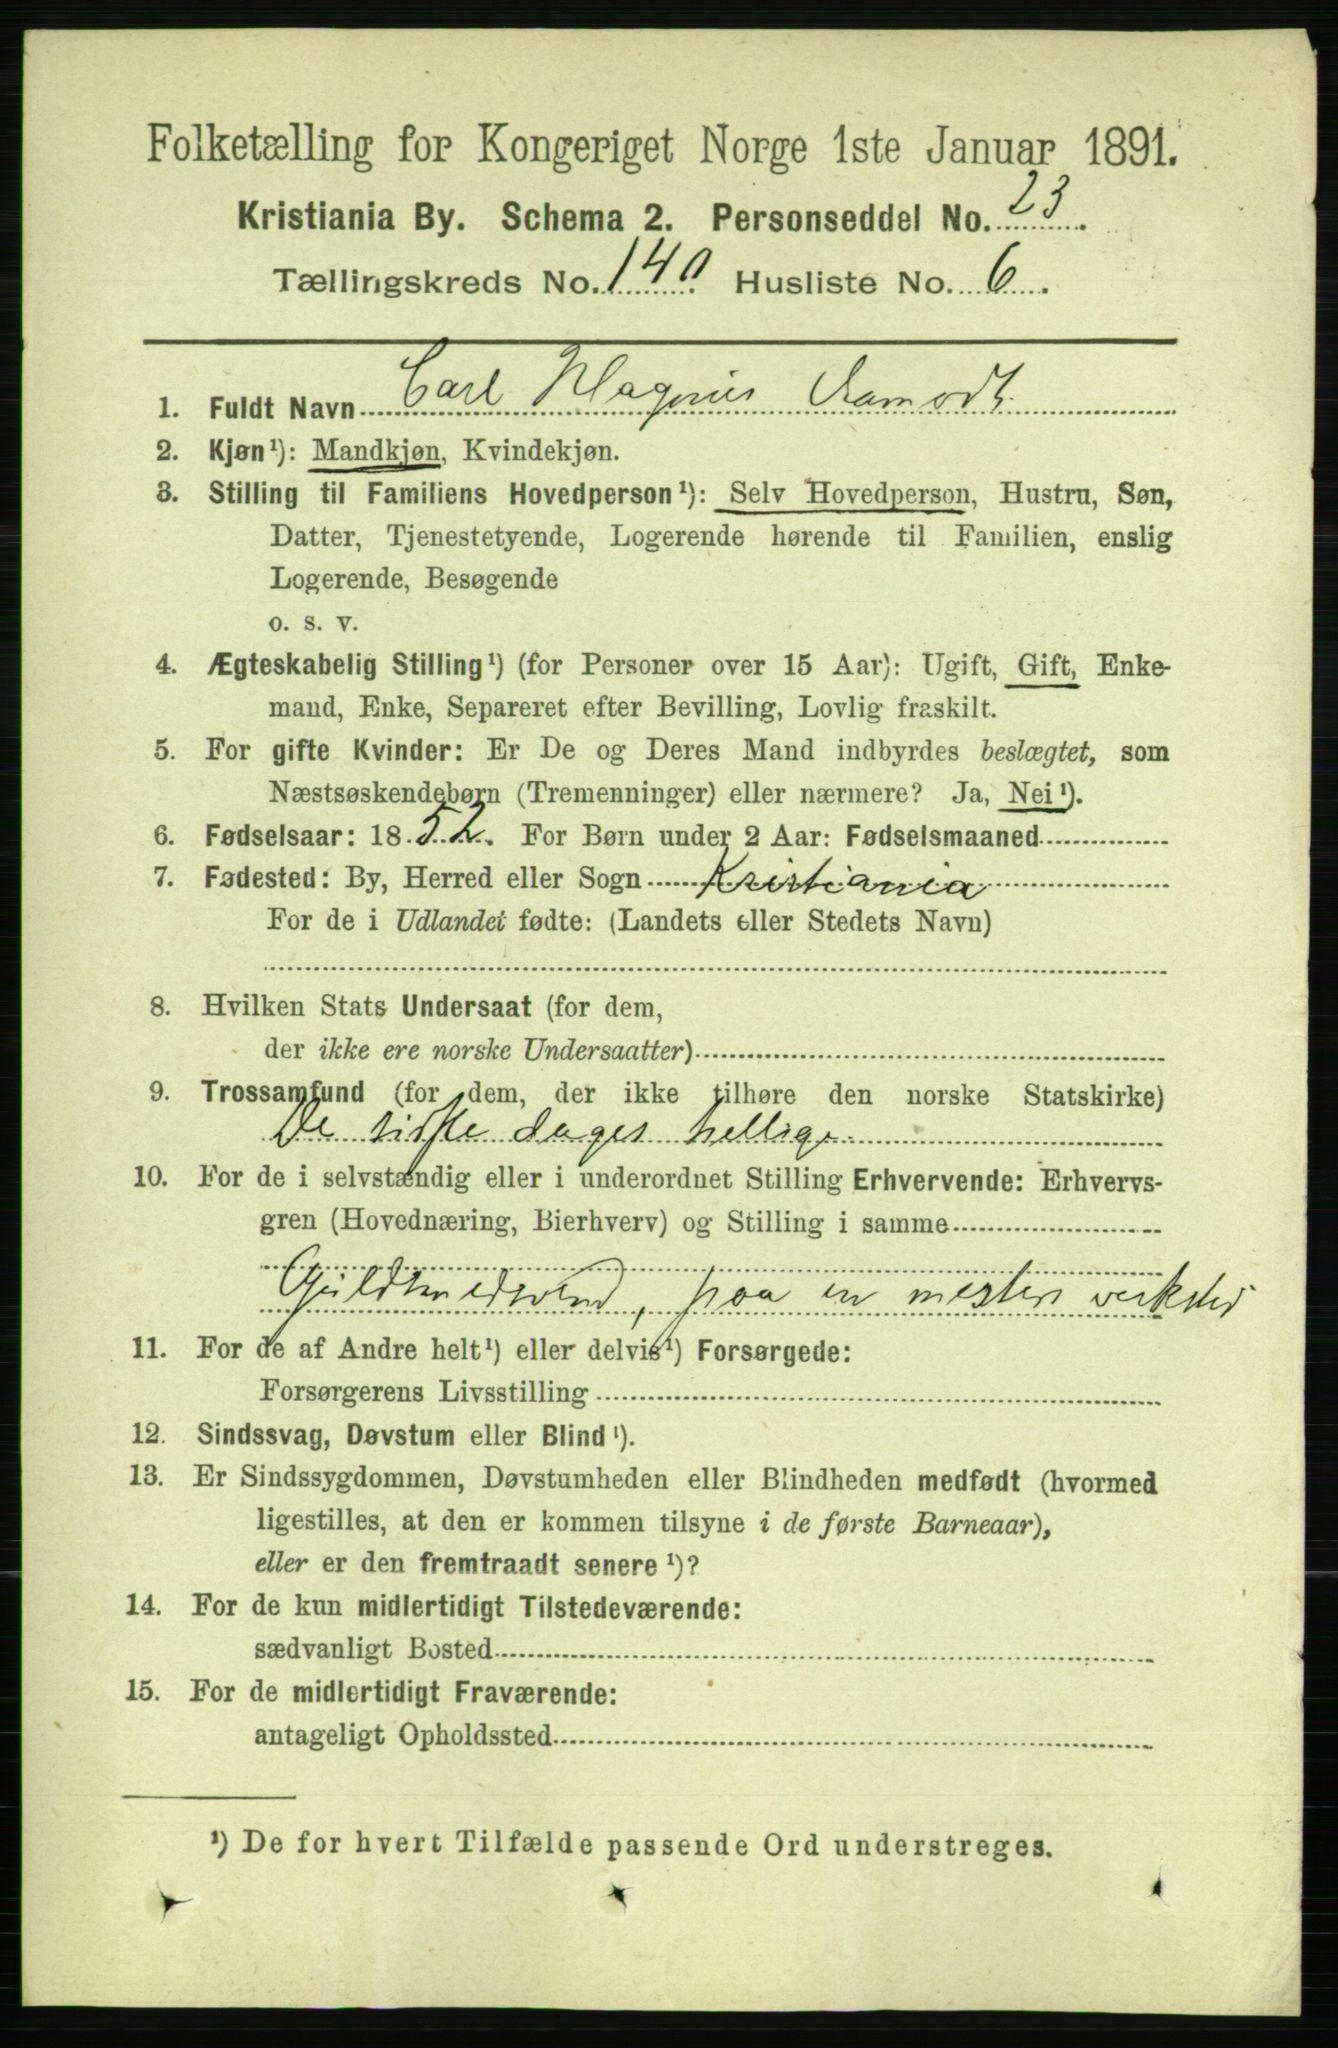 Folketælling for Kongeriget Norge 1ste Januar 1891.
Kristiania By. Schema 2. Personseddel No. 23.
Tællingskreds No. 140 Husliste No. 6.
1. Fuldt Navn Carl Magnus
2. Kjøn¹): Mandkjøn, Kvindekjøn.
3. Stilling til Familiens Hovedperson¹): Selv Hovedperson, Hustru, Søn,
Datter, Tjenestetyende, Logerende hørende til Familien, enslig
Logerende, Besøgende
o. s. v.
4. Ægteskabelig Stilling¹) (for Personer over 15 Aar): Ugift, Gift, Enke-
mand, Enke, Separeret efter Bevilling, Lovlig fraskilt.
5. For gifte Kvinder: Er De og Deres Mand indbyrdes beslægtet, som
Næstsøskendebørn (Tremenninger) eller nærmere? Ja, Nei¹).
6. Fødselsaar: 1852. For Børn under 2 Aar: Fødselsmaaned
7. Fødested: By, Herred eller Sogn Kristiania
For de i Udlandet fødte: (Landets eller Stedets Navn)
8. Hvilken Stats Undersaat (for dem,
der ikke ere norske Undersaatter)
9. Trossamfund (for dem, der ikke tilhøre den norske Statskirke)
De sidste dages hellige
10. For de i selvstændig eller i underordnet Stilling Erhvervende: Erhvervs-
gren (Hovednæring, Bierhverv) og Stilling i samme
Guldsmedsvend, paa en mesters verksted
11. For de af Andre helt¹) eller delvis¹) Forsørgede:
Forsørgerens Livsstilling
12. Sindssvag, Døvstum eller Blind¹).
13. Er Sindssygdommen, Døvstumheden eller Blindheden medfødt (hvormed
ligestilles, at den er kommen tilsyne i de første Barneaar),
eller er den fremtraadt senere¹)?
14. For de kun midlertidigt Tilstedeværende:
sædvanligt Bosted
15. For de midlertidigt Fraværende:
antageligt Opholdssted
¹) De for hvert Tilfælde passende Ord understreges.